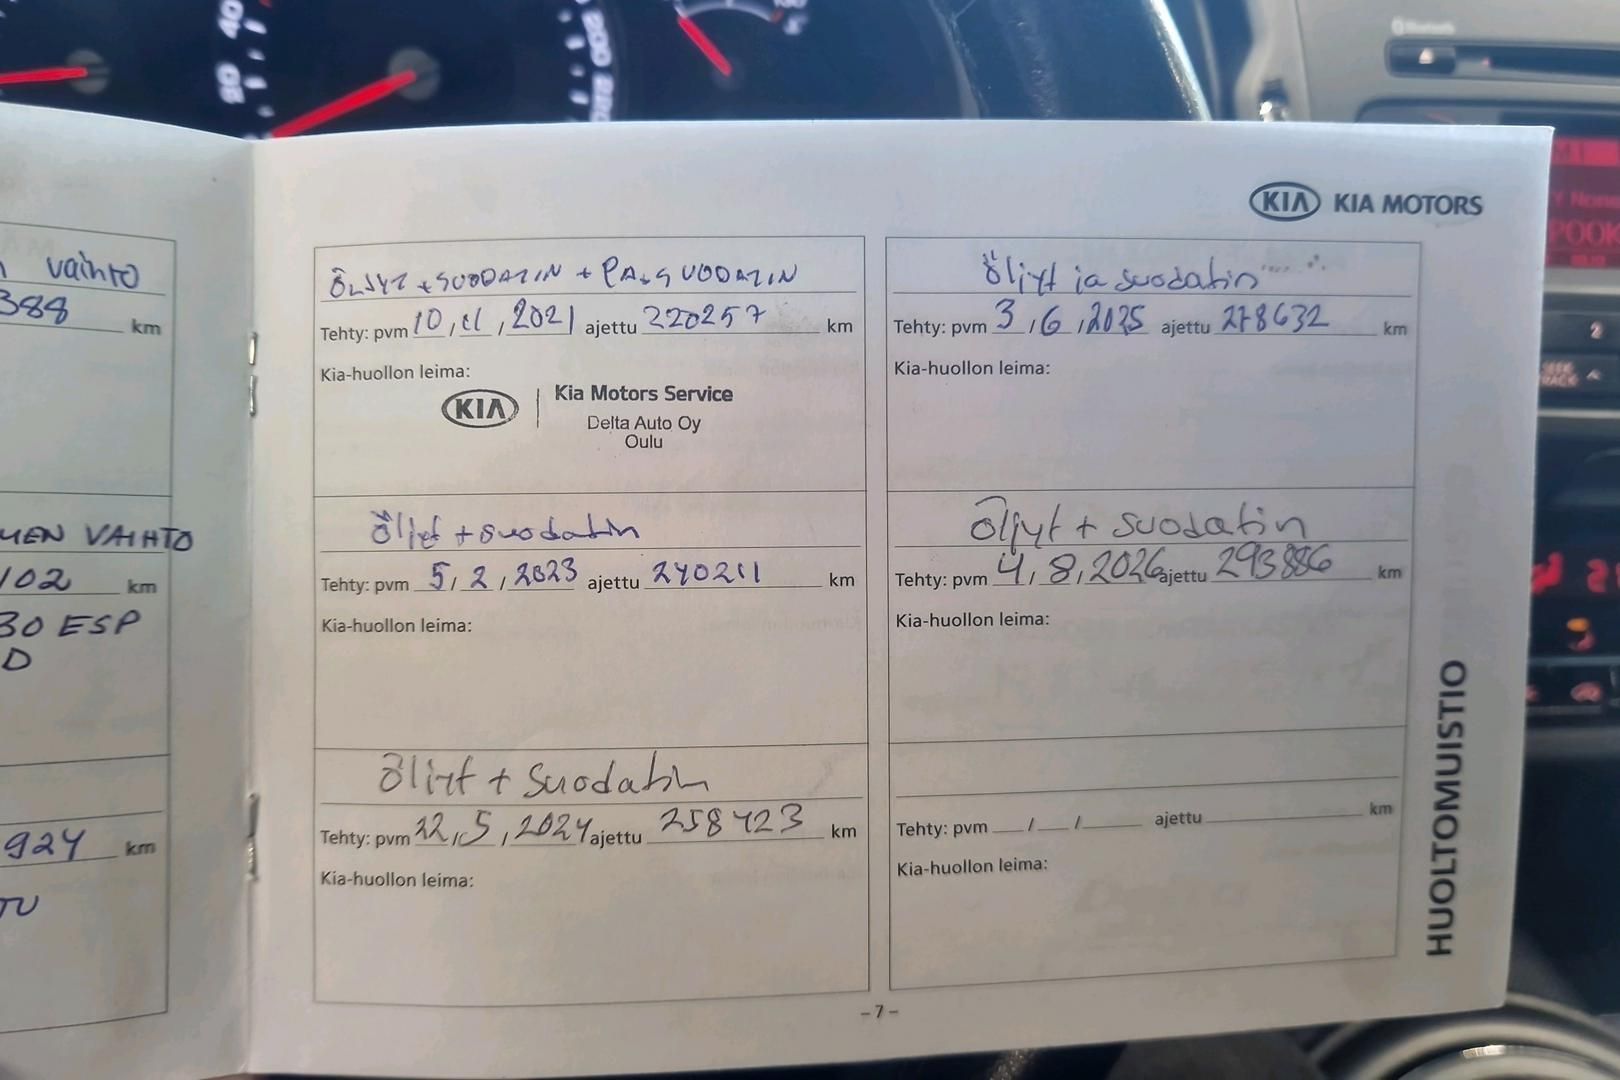 vaihto
388 km
MEN VAIHTO
102 km
30 ESP
D
924 km
TU
KIA KIA MOTORS
ÖLJYT + SUODATIN + RA.SUODATIN
Tehty: pvm 10 / 11 / 2021 ajettu 220257 km
Kia-huollon leima:
KIA | Kia Motors Service
Delta Auto Oy
Oulu
Öljyt + suodatin
Tehty: pvm 5 / 2 / 2023 ajettu 240211 km
Kia-huollon leima:
Öljyt + Suodatin
Tehty: pvm 22 / 5 / 2024 ajettu 258423 km
Kia-huollon leima:
Öljyt ja suodatin
Tehty: pvm 3 / 6 / 2025 ajettu 278632 km
Kia-huollon leima:
Öljyt + suodatin
Tehty: pvm 4 / 8 / 2026 ajettu 293886 km
Kia-huollon leima:
Tehty: pvm __ / __ / ____ ajettu ________ km
Kia-huollon leima:
HUOLTOMUISTIO
- 7 -
40
50
200
220
Bluetooth
Y None
POOK
2
SEEK
TRACK